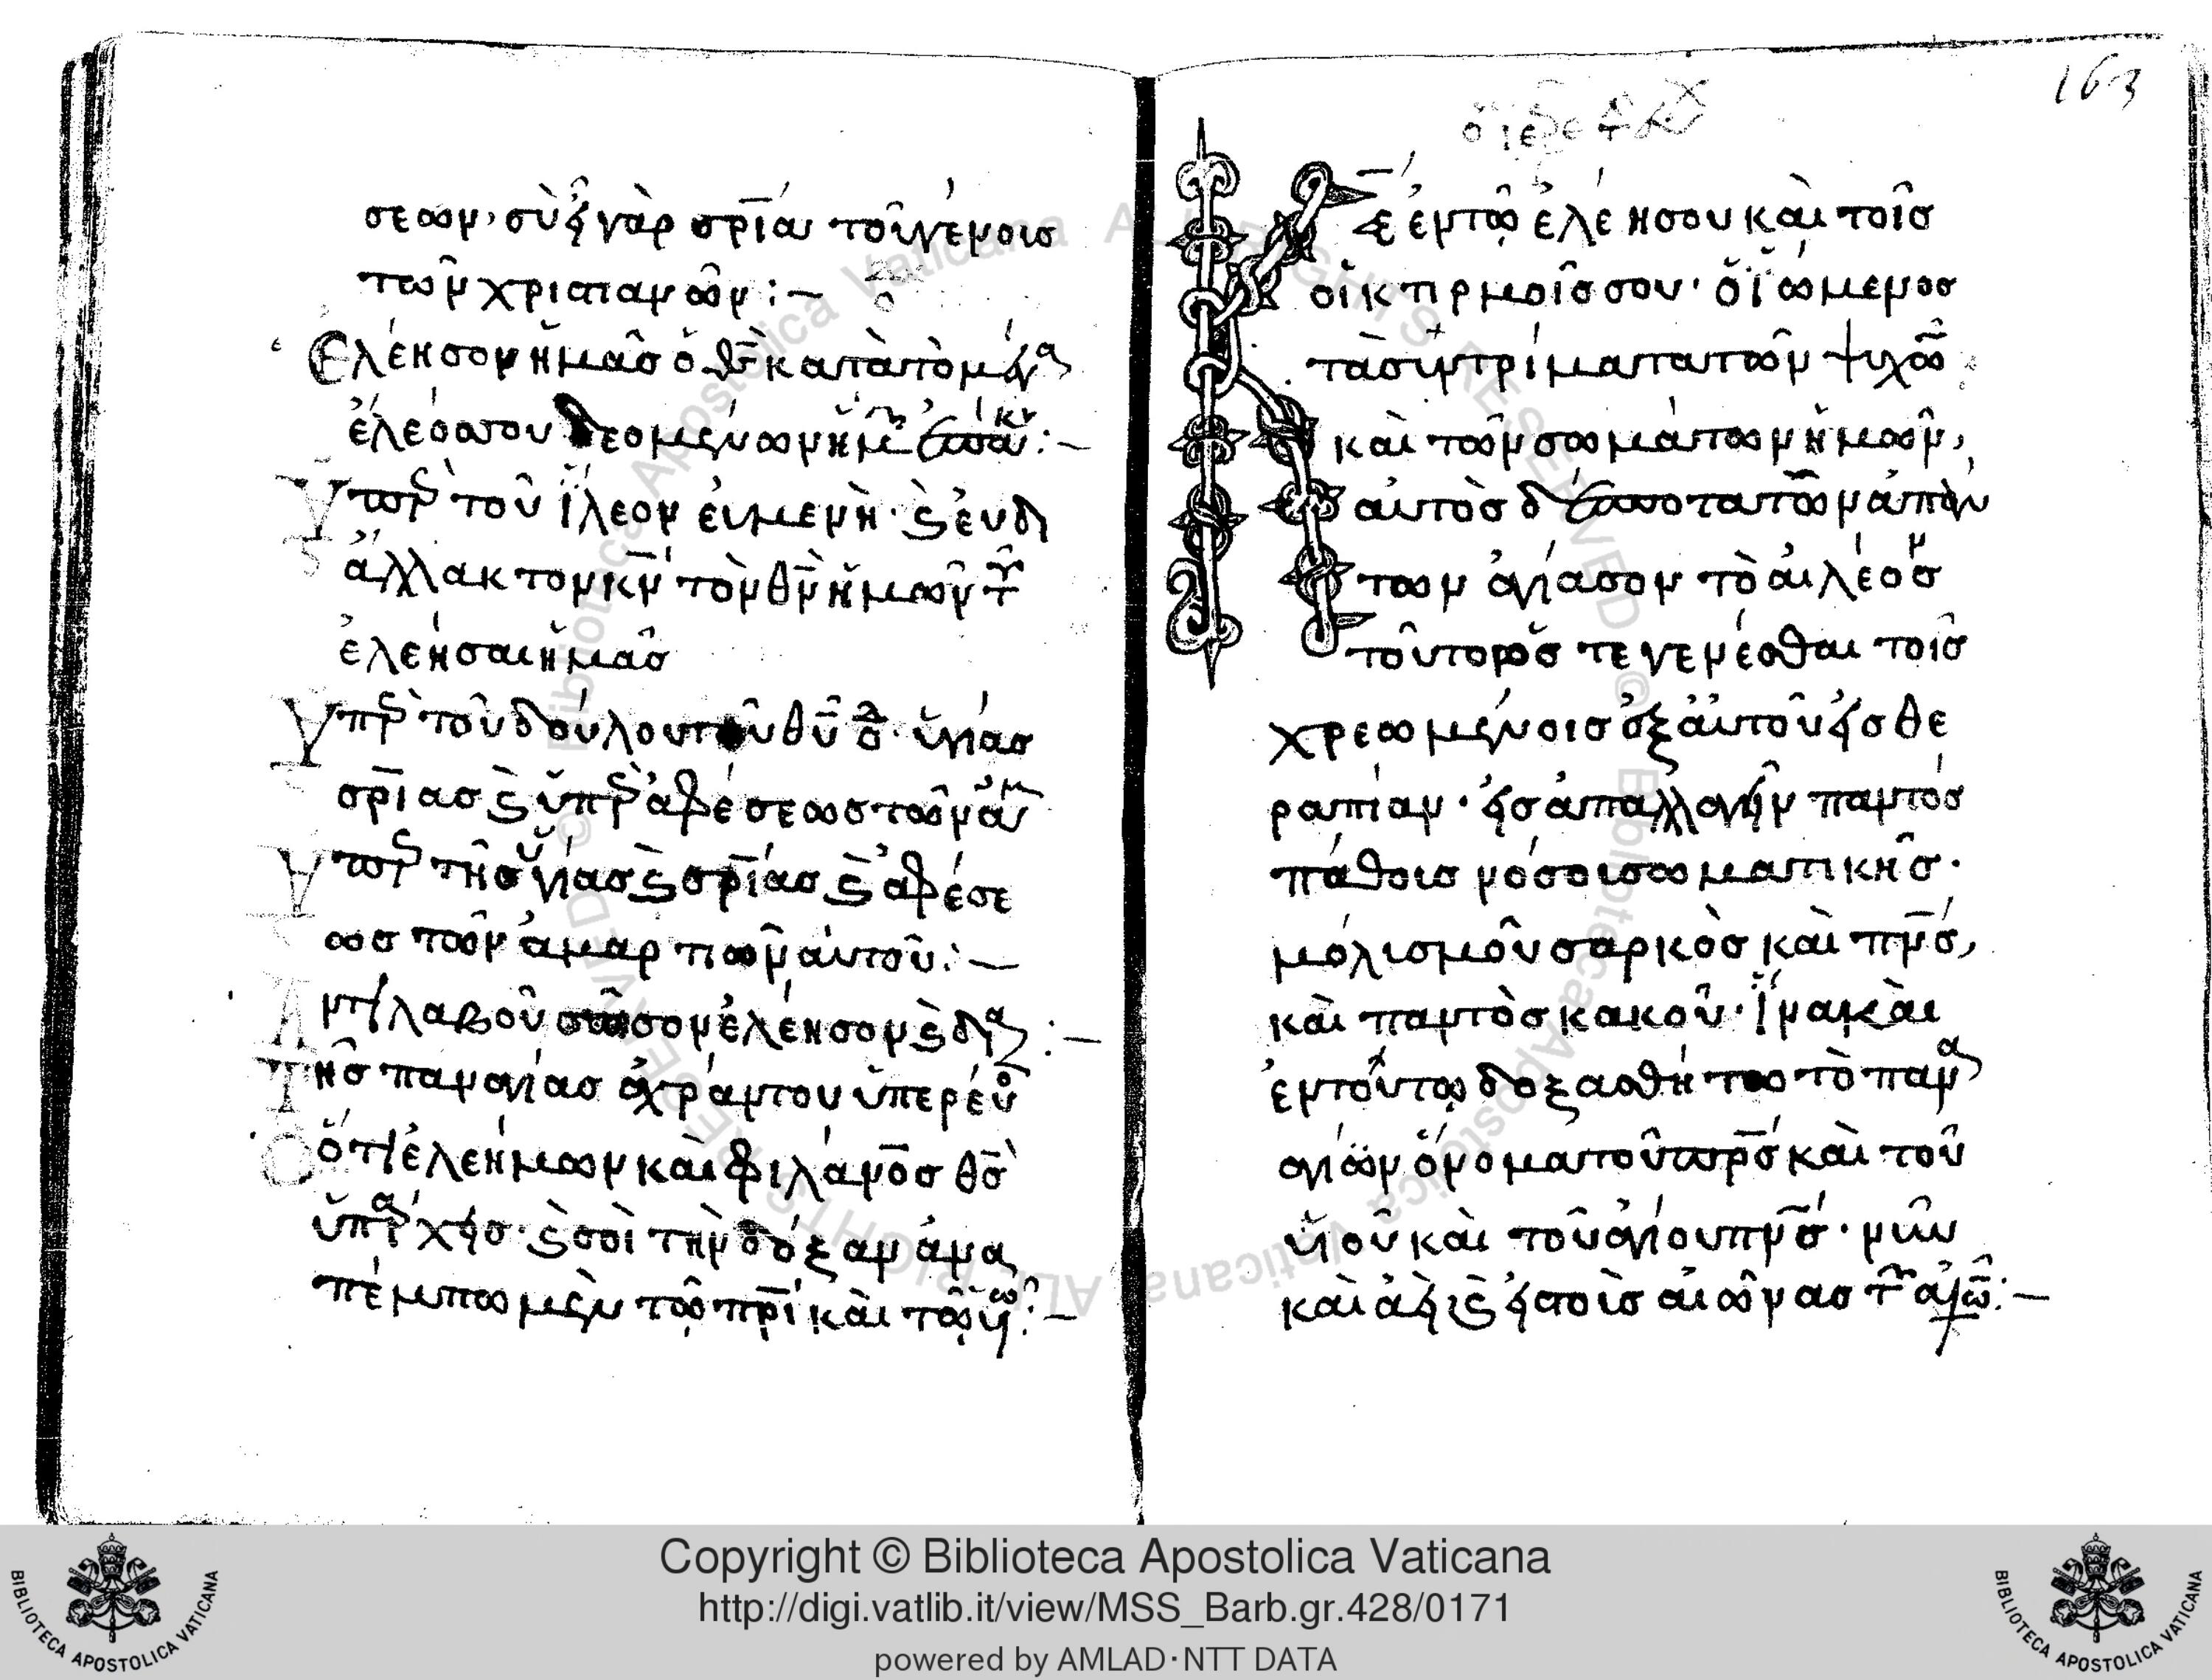 σεων, σὺ εἶ γὰρ σρ̅ία τοῦ γένους
τῶν χριστιανῶν :—
Ἐλέησον ἡμᾶς ὁ θς̅ κατὰ τὸ μέγα
ἔλεός σου δεομένων ἡμ
Ὑπὲρ τοῦ ἵλεον εὐμενῆ· ϗ εὐδι
άλλακτον κν̅ τὸν θν̅ ἡμῶν τ
ἐλεῆσαι ἡμᾶς
Ὑπὲρ τοῦ δούλου τοῦ θυ̅ ὑγιάσ
σρ̅ίας ϗ ὑπὲρ ἀφέσεως τῶν ἁμ
Ὑπὲρ τῆς ὑγίας ϗ σρ̅ίας ϗ ἀφέσε
ως τῶν ἁμαρτιῶν αὐτοῦ :—
Ἀντιλαβοῦ σῶσον ἐλέησον ϗ δια :—
Τῆς παναγίας ἀχράντου ὑπερευ
Ὅτι ἐλεήμων καὶ φιλάνος̅ θς̅
ὑπάρχεις· ϗ σοὶ τὴν δόξαν ἀνα
πέμπωμεν τῶ πρ̅ὶ καὶ τῶ υἱῶ :—
163
Κε̅ ἐν τῶ ἐλέη σου καὶ τοῖς
οἰκτιρμοῖς σου· ὁ ἰώμενος
τὰ συντρίματα τῶν ψυχῶ
καὶ τῶν σωμάτων ἡμῶν,
αὐτὸς δέσποτα τῶν ἁπάν
των ἁγίασον τὸ αἰλέον
τοῦτο ὥστε γενέσθαι τοῖς
χρεωμένοις ἐξ αὐτοῦ εἰς θε
ραπίαν· εἰς ἀπαλλαγὴν παντός
πάθους νόσου σωματικῆς·
μολισμοῦ σαρκὸς καὶ πνς̅,
καὶ παντὸς κακοῦ· ἵνα καὶ
ἐν τούτω δοξασθῆ τὸ πανα
γίων ὄνομα τοῦ πρς̅ καὶ τοῦ
υἱοῦ καὶ τοῦ ἁγίου πνς̅· νῦν
καὶ ἀεὶ ϗ εἰς τοὺς αἰῶνας τ αἰώ :—
Copyright © Biblioteca Apostolica Vaticana
http://digi.vatlib.it/view/MSS_Barb.gr.428/0171
powered by AMLAD·NTT DATA
BIBLIOTECA APOSTOLICA VATICANA
BIBLIOTECA APOSTOLICA VATICANA